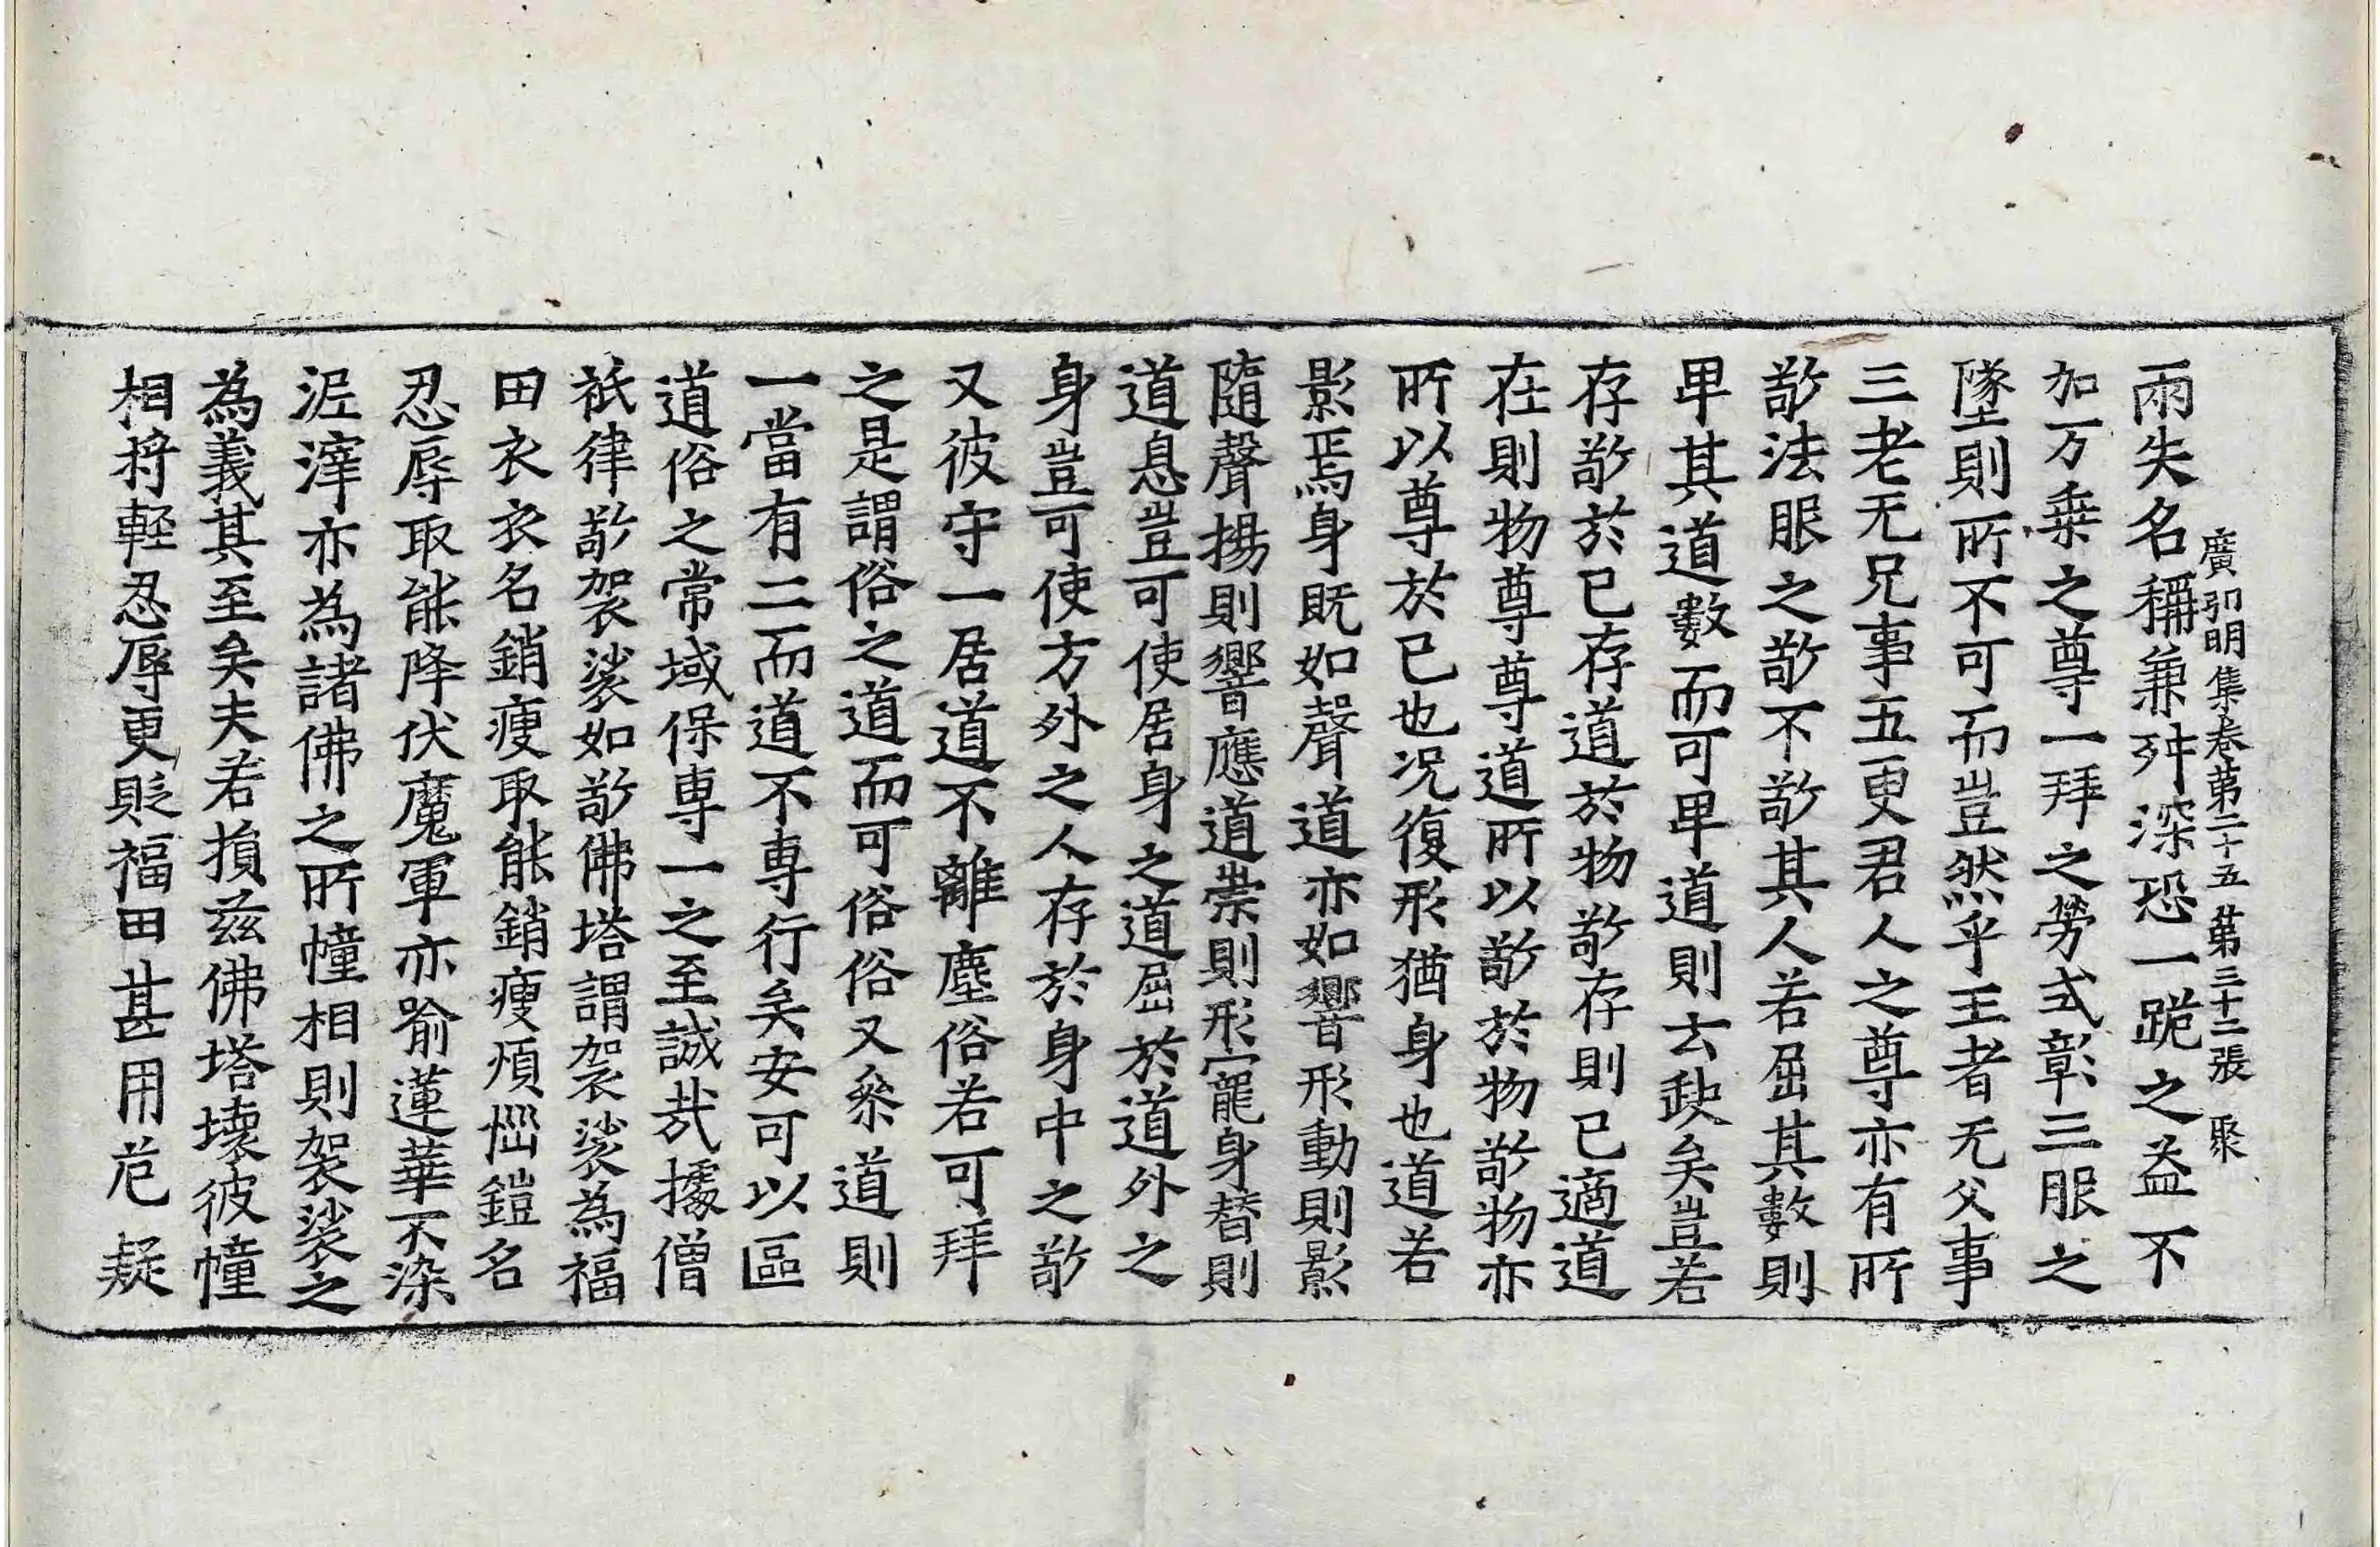 廣弘明集卷第二十五 第三十二張 聚
兩失名稱兼舛深恐一跪之益不
加万乗之尊一拜之勞式彰三服之
墜則所不可而豈然乎王者无父事
三老无兄事五更君人之尊亦有所
敬法服之敬不敬其人若屈其數則
卑其道數而可卑道則去缺矣豈若
存敬於已存道於物敬存則已適道
在則物尊尊道所以敬於物敬物亦
所以尊於已也况復形猶身也道若
影焉身既如聲道亦如響形動則影
隨聲揚則響應道崇則形寵身替則
道息豈可使居身之道屈於道外之
身豈可使方外之人存於身中之敬
又彼守一居道不離塵俗若可拜
之是謂俗之道而可俗俗又叅道則
一當有二而道不專行矣安可以區
道俗之常域保專一之至誠㦲據僧
祇律敬袈裟如敬佛塔謂袈裟為福
田衣衣名銷瘦取能銷瘦煩惱鎧名
忍辱取能降伏魔軍亦喻蓮華不染
泥滓亦為諸佛之所幢相則袈裟之
為義其至矣夫若損兹佛塔壞彼幢
相將輕忍辱更貶福田甚用危疑